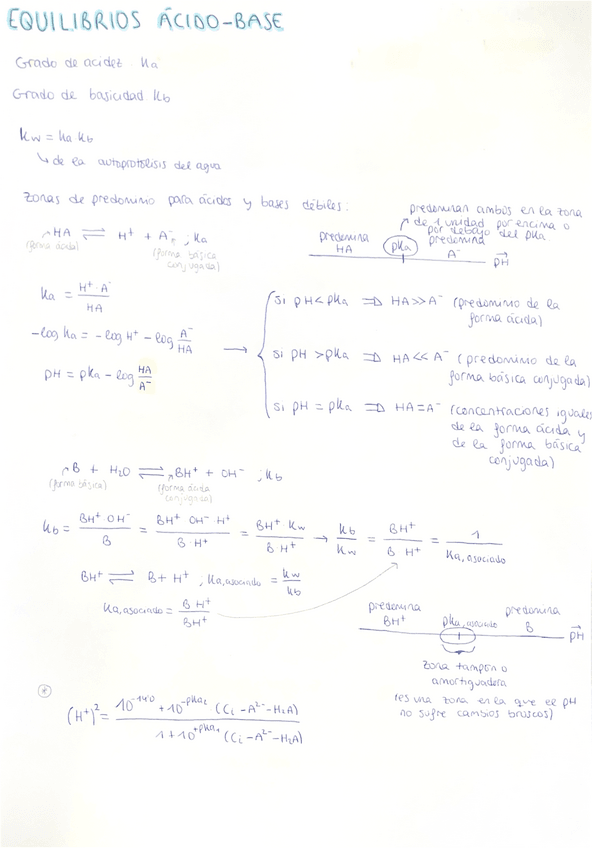 EQUILIBRIOS ÁCIDO-BASE
Grado de acidez Ka
Grado de basicidad Kb
Kw = Ka Kb
↳ de la autoprotólisis del agua
Zonas de predominio para ácidos y bases débiles:
HA ⇌ H⁺ + A⁻ ; Ka
(forma ácida)
(forma básica conjugada)
predominan ambos en la zona
de 1 unidad por encima o
por debajo del pKa
predomina HA
pKa
predomina A⁻
pH
Ka = H⁺·A⁻ / HA
-log Ka = -log H⁺ - log A⁻/HA
pH = pKa - log HA/A⁻
→
Si pH < pKa ⇒ HA >> A⁻ (predominio de la
forma ácida)
Si pH > pKa ⇒ HA << A⁻ (predominio de la
forma básica conjugada)
Si pH = pKa ⇒ HA = A⁻ (concentraciones iguales
de la forma ácida y
de la forma básica
conjugada)
B + H₂O ⇌ BH⁺ + OH⁻ ; Kb
(forma básica)
(forma ácida conjugada)
Kb = BH⁺ OH⁻ / B = BH⁺ OH⁻ H⁺ / B·H⁺ = BH⁺ Kw / B H⁺ → Kb/Kw = BH⁺ / B H⁺ = 1 / Ka, asociado
BH⁺ ⇌ B + H⁺ ; Ka, asociado = Kw/Kb
Ka, asociado = B H⁺ / BH⁺
predomina BH⁺
pKa, asociado
predomina B
pH
zona tampón o
amortiguadora
(es una zona en la que el pH
no sufre cambios bruscos)
*
(H⁺)² = 10⁻¹⁴'⁰ + 10^-pKa₂ (Ci - A²⁻ - H₂A) / 1 + 10^+pKa₁ (Ci - A²⁻ - H₂A)